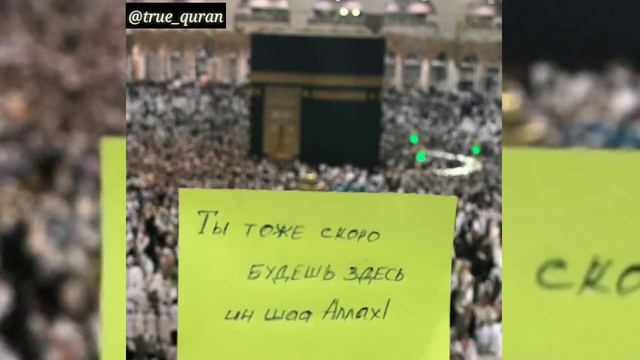 @true_quran
Ты тоже скоро
будешь здесь
ин шаа Аллах!
ско